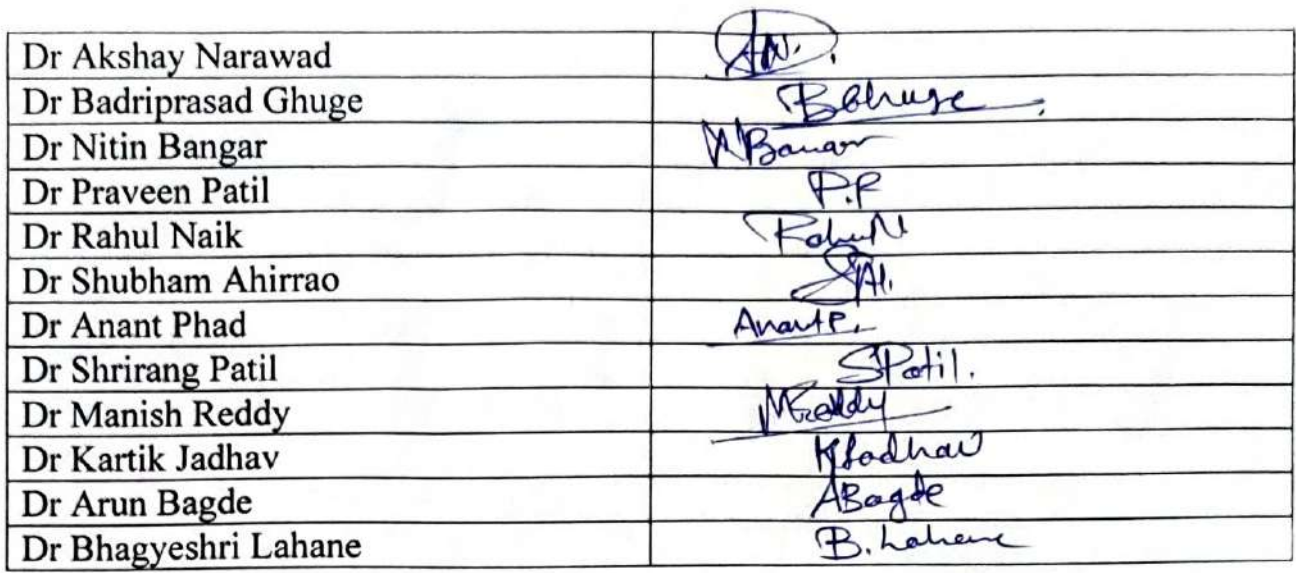 Dr Akshay Narawad AN.
Dr Badriprasad Ghuge BGhuge
Dr Nitin Bangar NBangar
Dr Praveen Patil P.P
Dr Rahul Naik RahulN
Dr Shubham Ahirrao SAh.
Dr Anant Phad AnantP.
Dr Shrirang Patil SPatil.
Dr Manish Reddy MReddy
Dr Kartik Jadhav KJadhav
Dr Arun Bagde ABagde
Dr Bhagyeshri Lahane B. Lahane